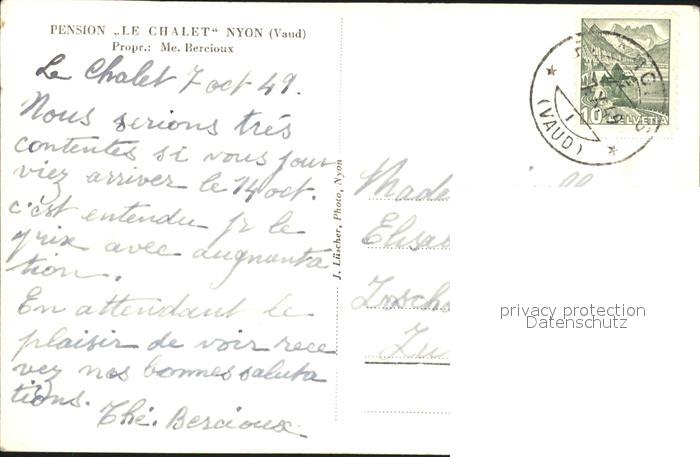 PENSION „LE CHALET“ NYON (Vaud)
Propr.: Me. Bercioux
Le Chalet 7 oct 49.
Nous serions trés
contentes si vous pour
viez arriver le 14 oct.
c'est entendu pr le
prix avec augmenta
tion.
En attendant le
plaisir de voir rece
vez nos bonnes saluta
tions.
Thé. Bercioux
J. Lüscher, Photo, Nyon
10 HELVETIA
(VAUD)
Made
Elisa
Zu
privacy protection
Datenschutz